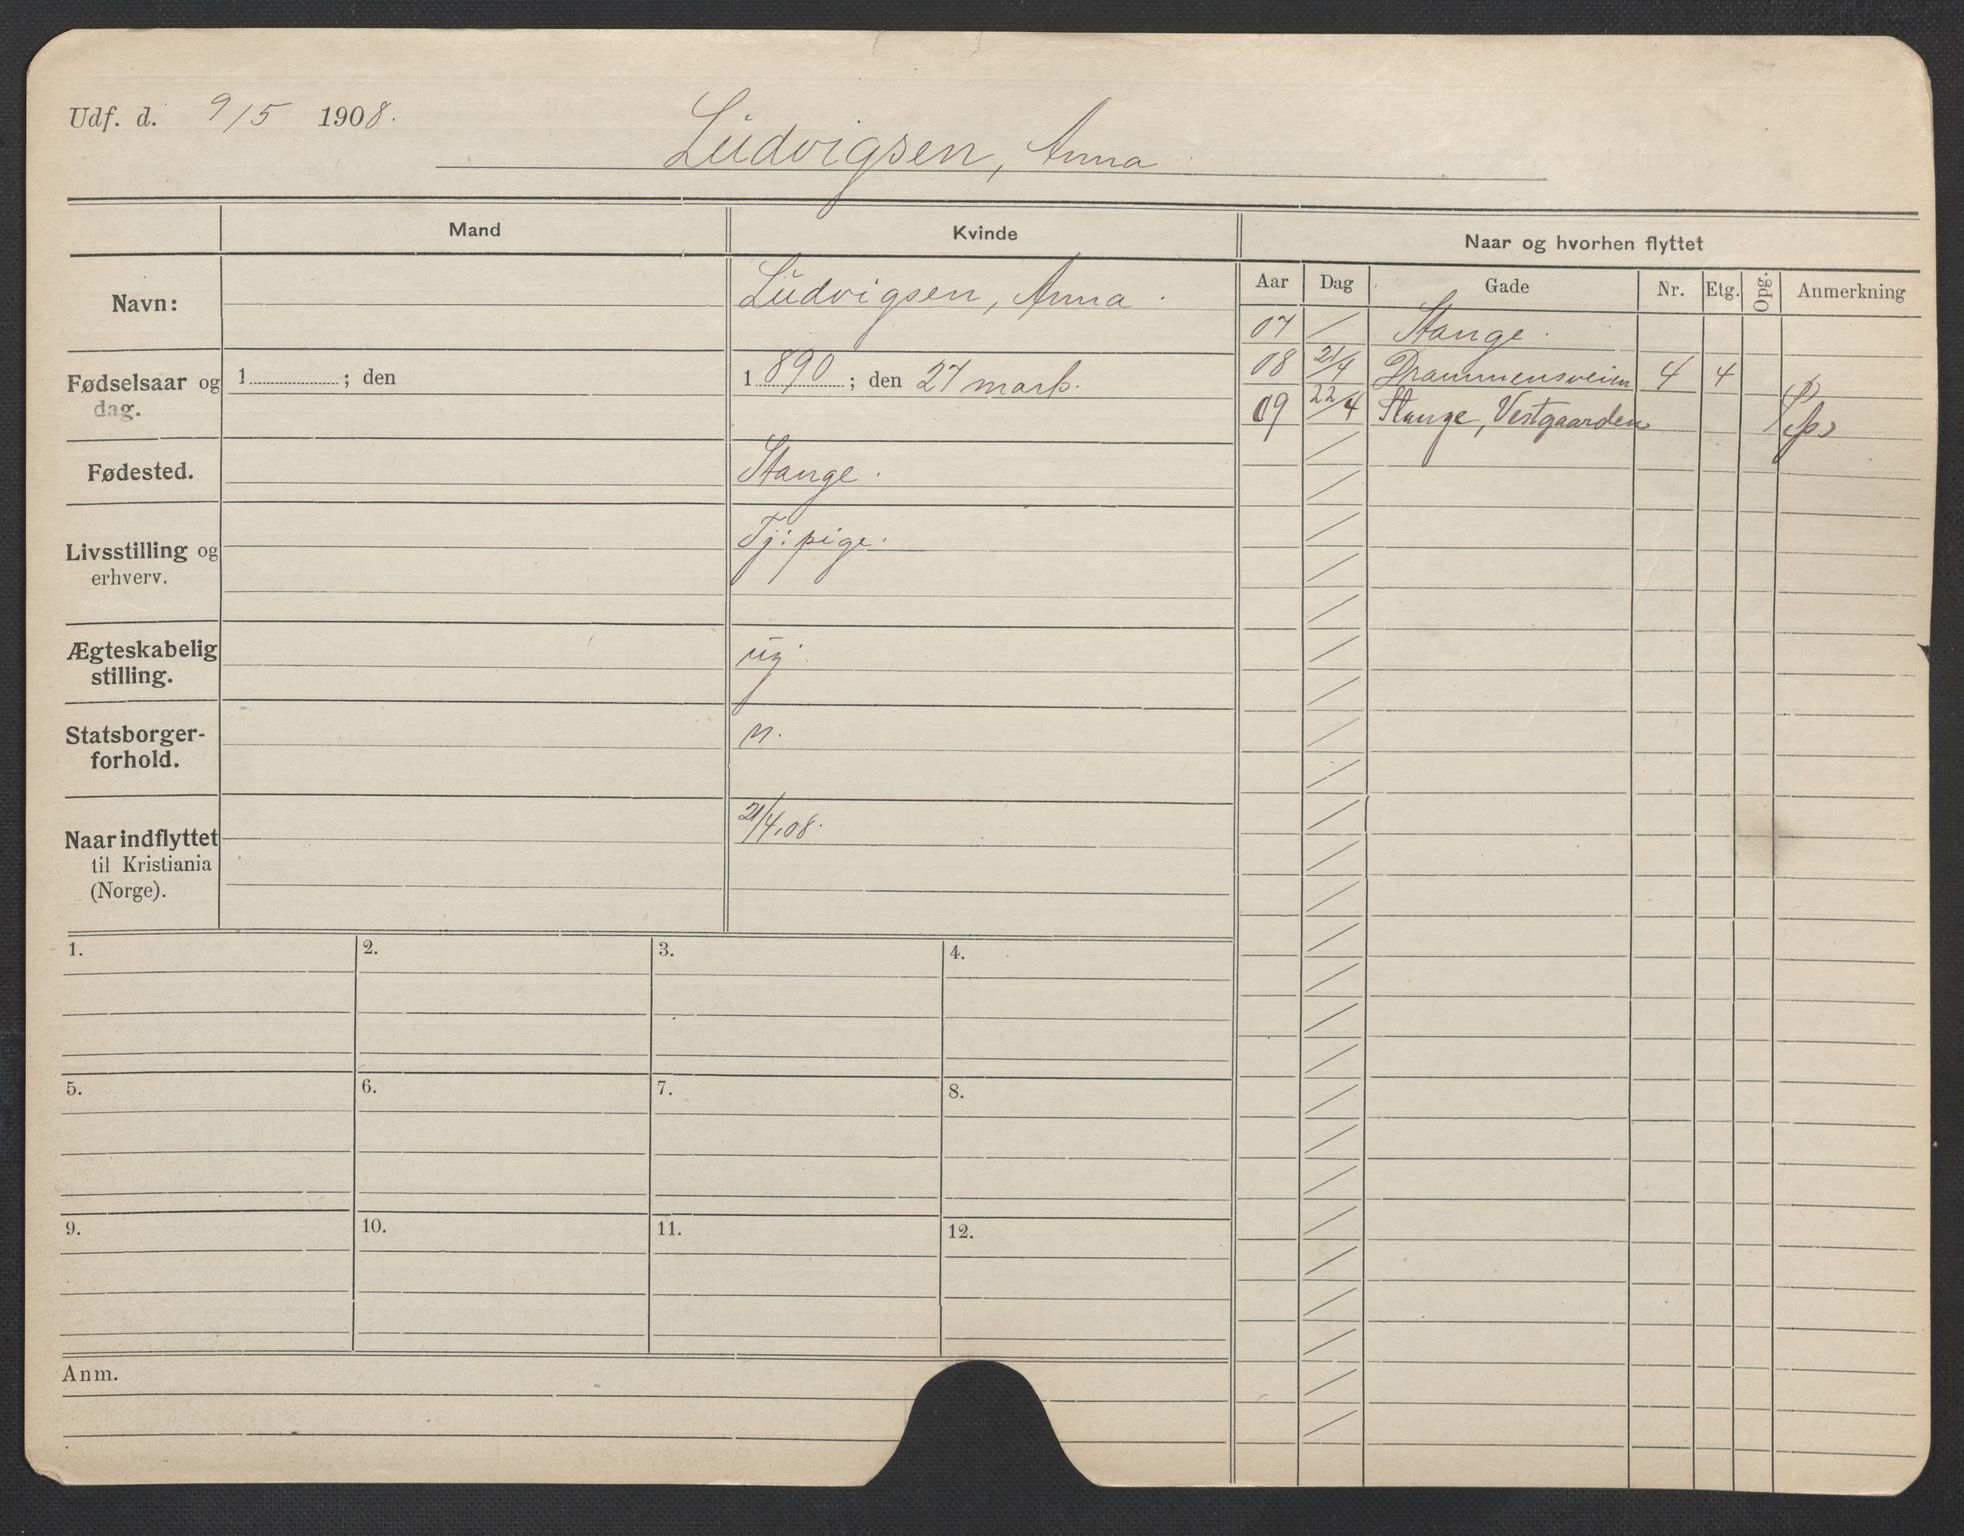 Udf. d. 9/5 1908.
Lüdvigsen, Anna
Mand Kvinde Naar og hvorhen flyttet
Aar Dag Gade Nr. Etg. Opg. Anmerkning
Navn: Lüdvigsen, Anna.
07 / Stange.
08 21/4 Drammensveien 4 4
09 22/4 Stange, Vestgaarden
Fødselsaar og 1 ; den 1890 ; den 27 marts.
dag.
Fødested. Stange.
Livsstilling og Tj: pige.
erhverv.
Ægteskabelig ug
stilling.
Statsborger- n.
forhold.
Naar indflyttet 21/4.08.
til Kristiania
(Norge).
1. 2. 3. 4.
5. 6. 7. 8.
9. 10. 11. 12.
Anm.